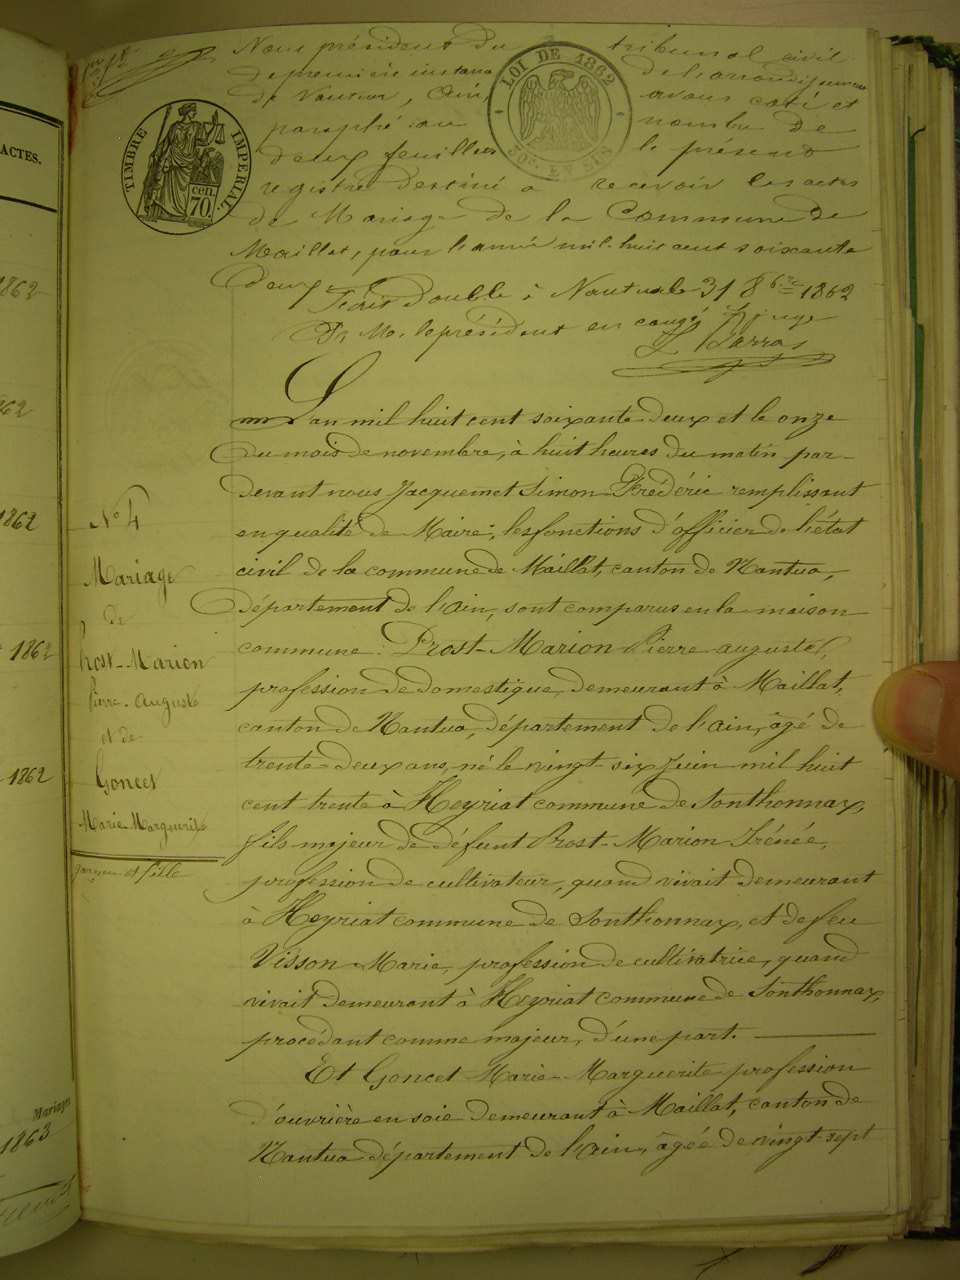 ACTES.
1862
1862
1862
1862
1862
Mariages
1863
TIMBRE IMPERIAL.
cen. 70.
LOI DE 1862
50c. EN SUS
Nous président du tribunal civil
de première instance de l'arrondissement
de Nantua, Ain, avons coté et
paraphé au nombre de
deux feuillets le présent
registre destiné à recevoir les actes
de Mariage de la Commune de
Maillat, pour l'année mil huit cent soixante
deux
Fait double à Nantua le 31 8bre 1862
Pr Mr. le président en congé
juge
L'an mil huit cent soixante deux et le onze
du mois de novembre, à huit heures du matin par-
devant nous Jacquemet Simon Frédéric remplissant
en qualité de Maire, les fonctions d'officier de l'état
civil de la commune de Maillat, canton de Nantua,
département de l'ain, sont comparus en la maison
commune: Prost-Marion Pierre auguste,
profession de domestique, demeurant à Maillat,
canton de Nantua, département de l'ain, âgé de
trente-deux ans, né le vingt-six Juin mil huit
cent trente à Heyriat commune de Sonthonnax,
fils majeur de défunt Prost-Marion Irénée,
profession de cultivateur, quand vivait demeurant
à Heyriat commune de Sonthonnax, et de feu
Visson Marie, profession de cultivatrice, quand
vivait demeurant à Heyriat commune de Sonthonnax,
procédant comme majeur, d'une part.
Et Goncet Marie-Marguerite profession
d'ouvrière en soie demeurant à Maillat, canton de
Nantua département de l'ain, âgée de vingt-sept
N° 4
Mariage
de
Prost-Marion
Pierre-Auguste
et de
Goncet
Marie-Marguerite
garçon et fille